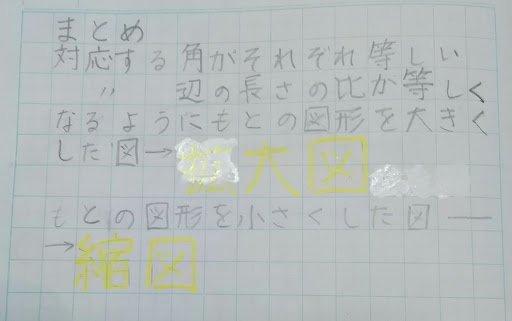 まとめ
対応する角がそれぞれ等しい
〃 辺の長さの比が等しく
なるようにもとの図形を大きく
した図→拡大図
もとの図形を小さくした図―
→縮図